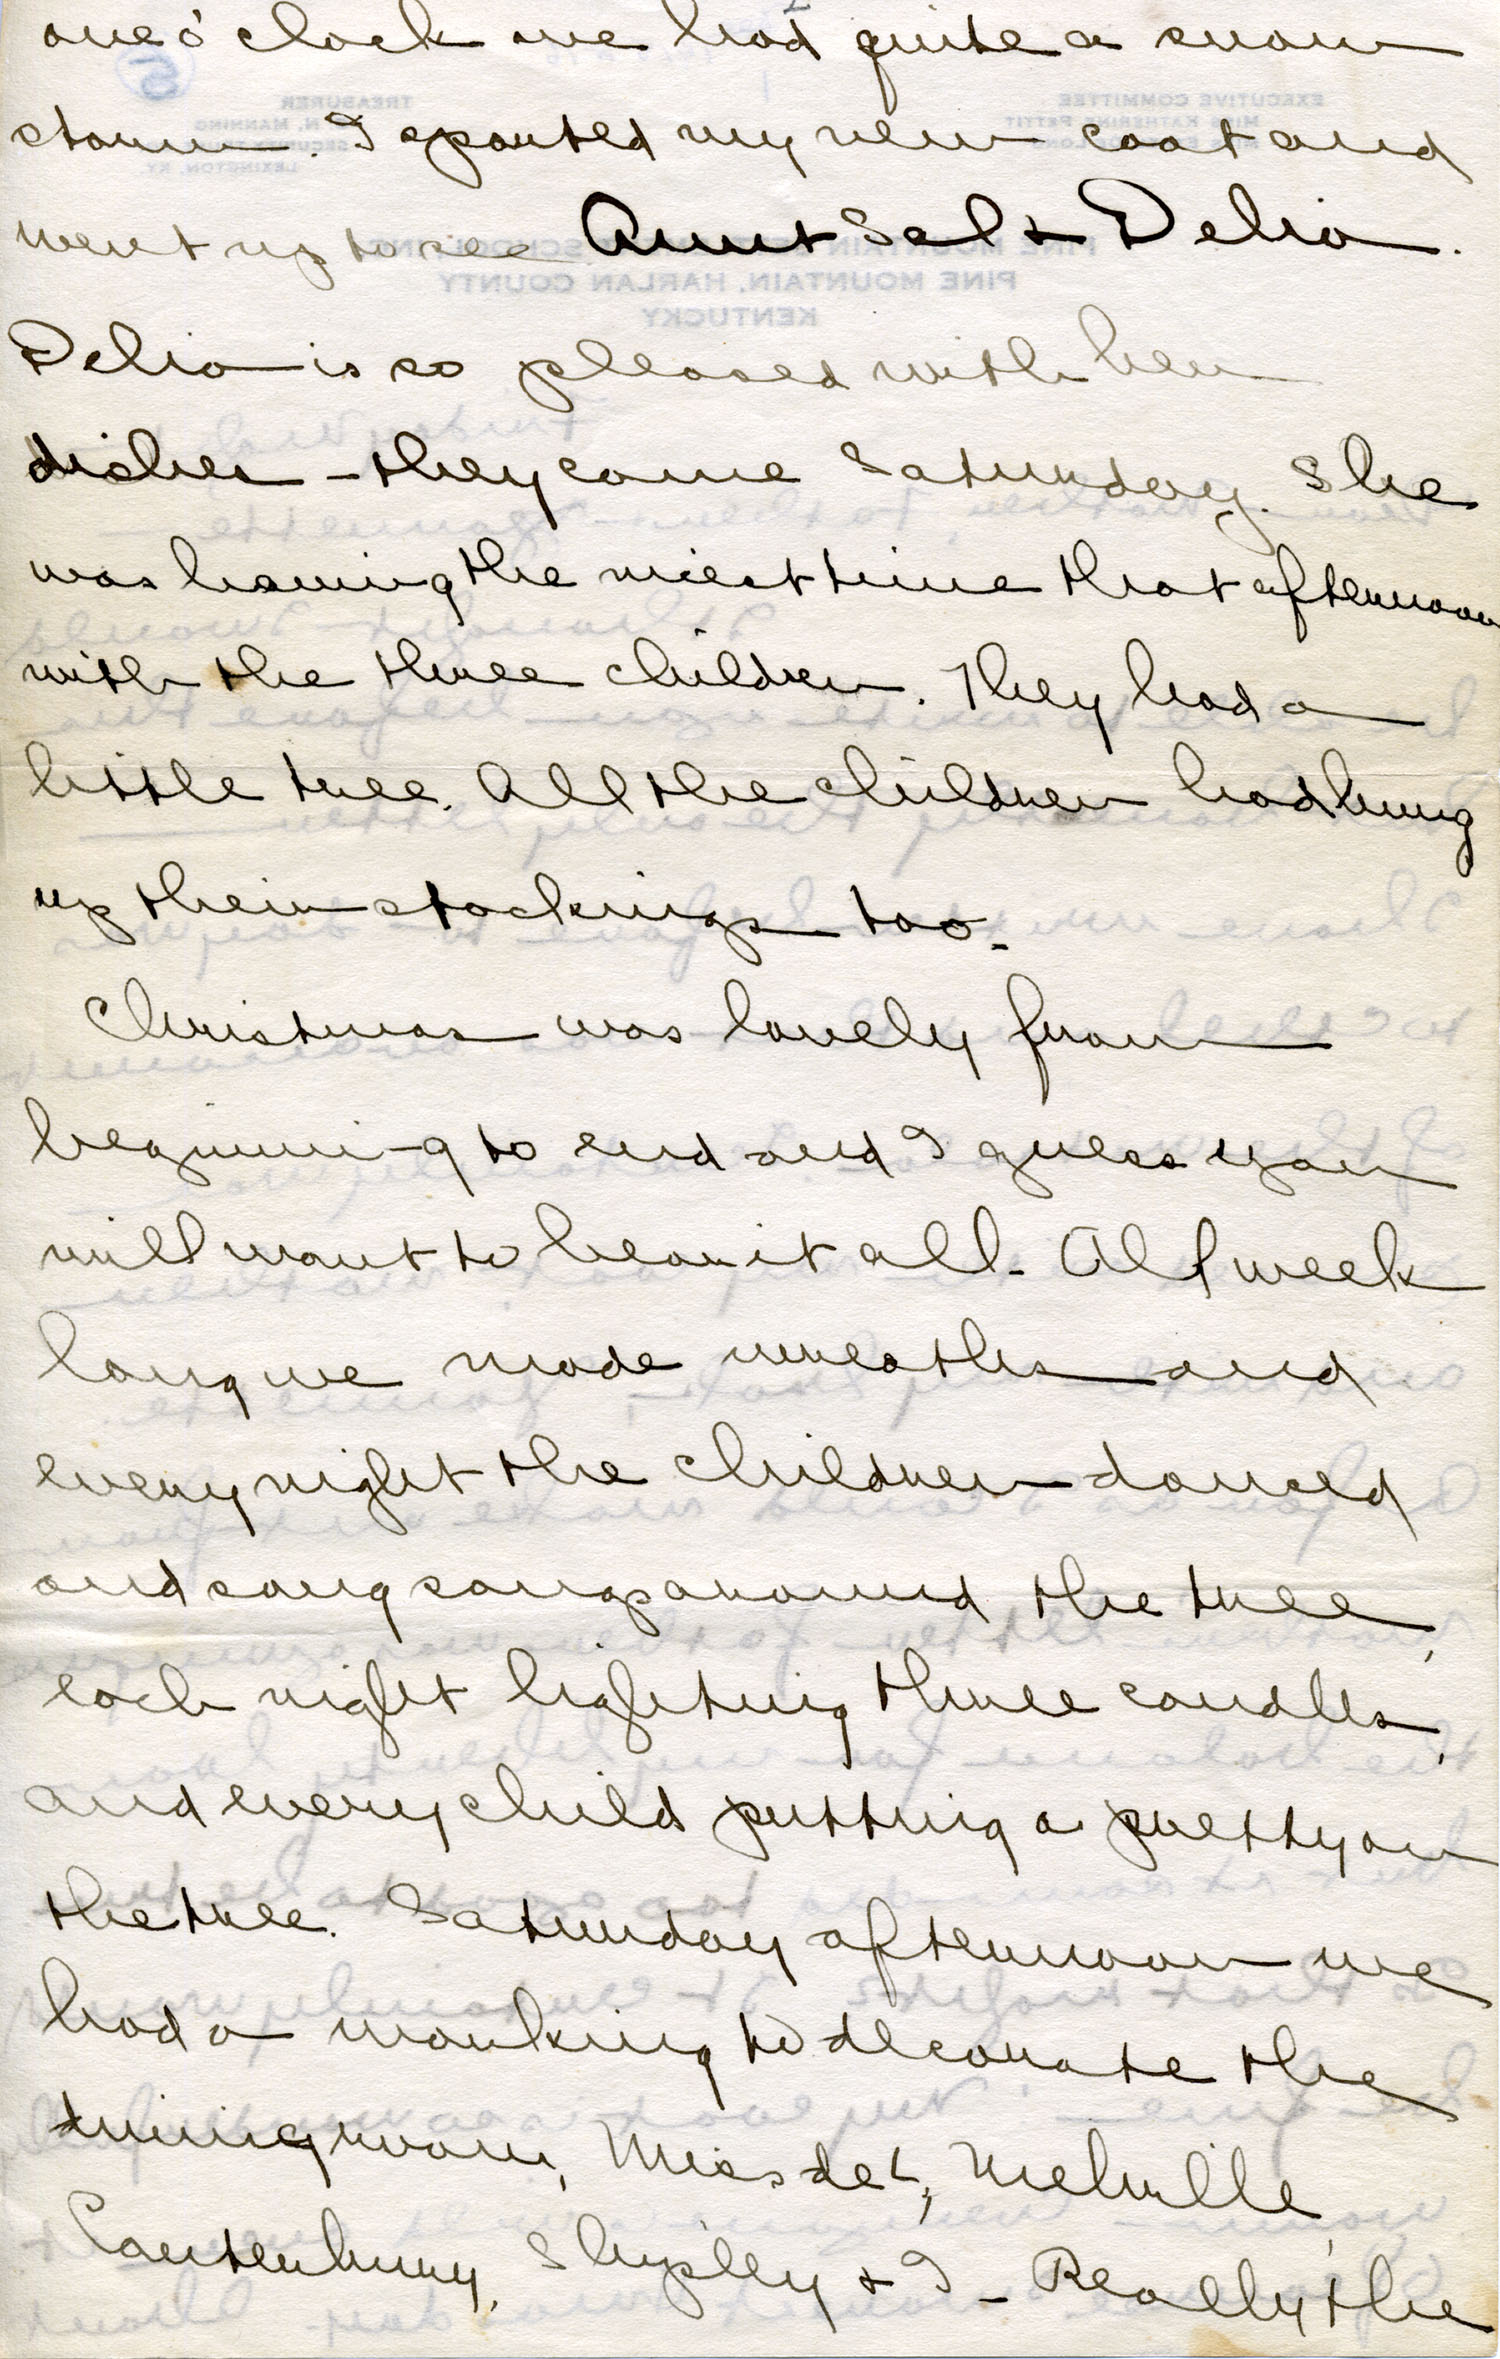 one o'clock we had quite a snow
storm. I sported my new coat and
went up to see Aunt Sal & Delia.
Delia is so pleased with her
dishes - they came Saturday. She
was having the nicest time that afternoon
with the three children. They had a
little tree. All the children had hung
up their stockings too.
Christmas was lovely from
beginning to end and I guess you
will want to hear it all. All week
long we made wreaths and
every night the children danced
and sang songs around the tree,
each night lighting three candles,
and every child putting a pretty on
the tree. Saturday afternoon we
had a working to decorate the
dining room, Miss de L, Melville,
Canterbury, Shipley & I - Really the
5
EXECUTIVE COMMITTEE
MISS KATHERINE PETTIT
TREASURER
N. MANNING
LEXINGTON, KY.
PINE MOUNTAIN SETTLEMENT SCHOOL, INC.
PINE MOUNTAIN, HARLAN COUNTY
KENTUCKY